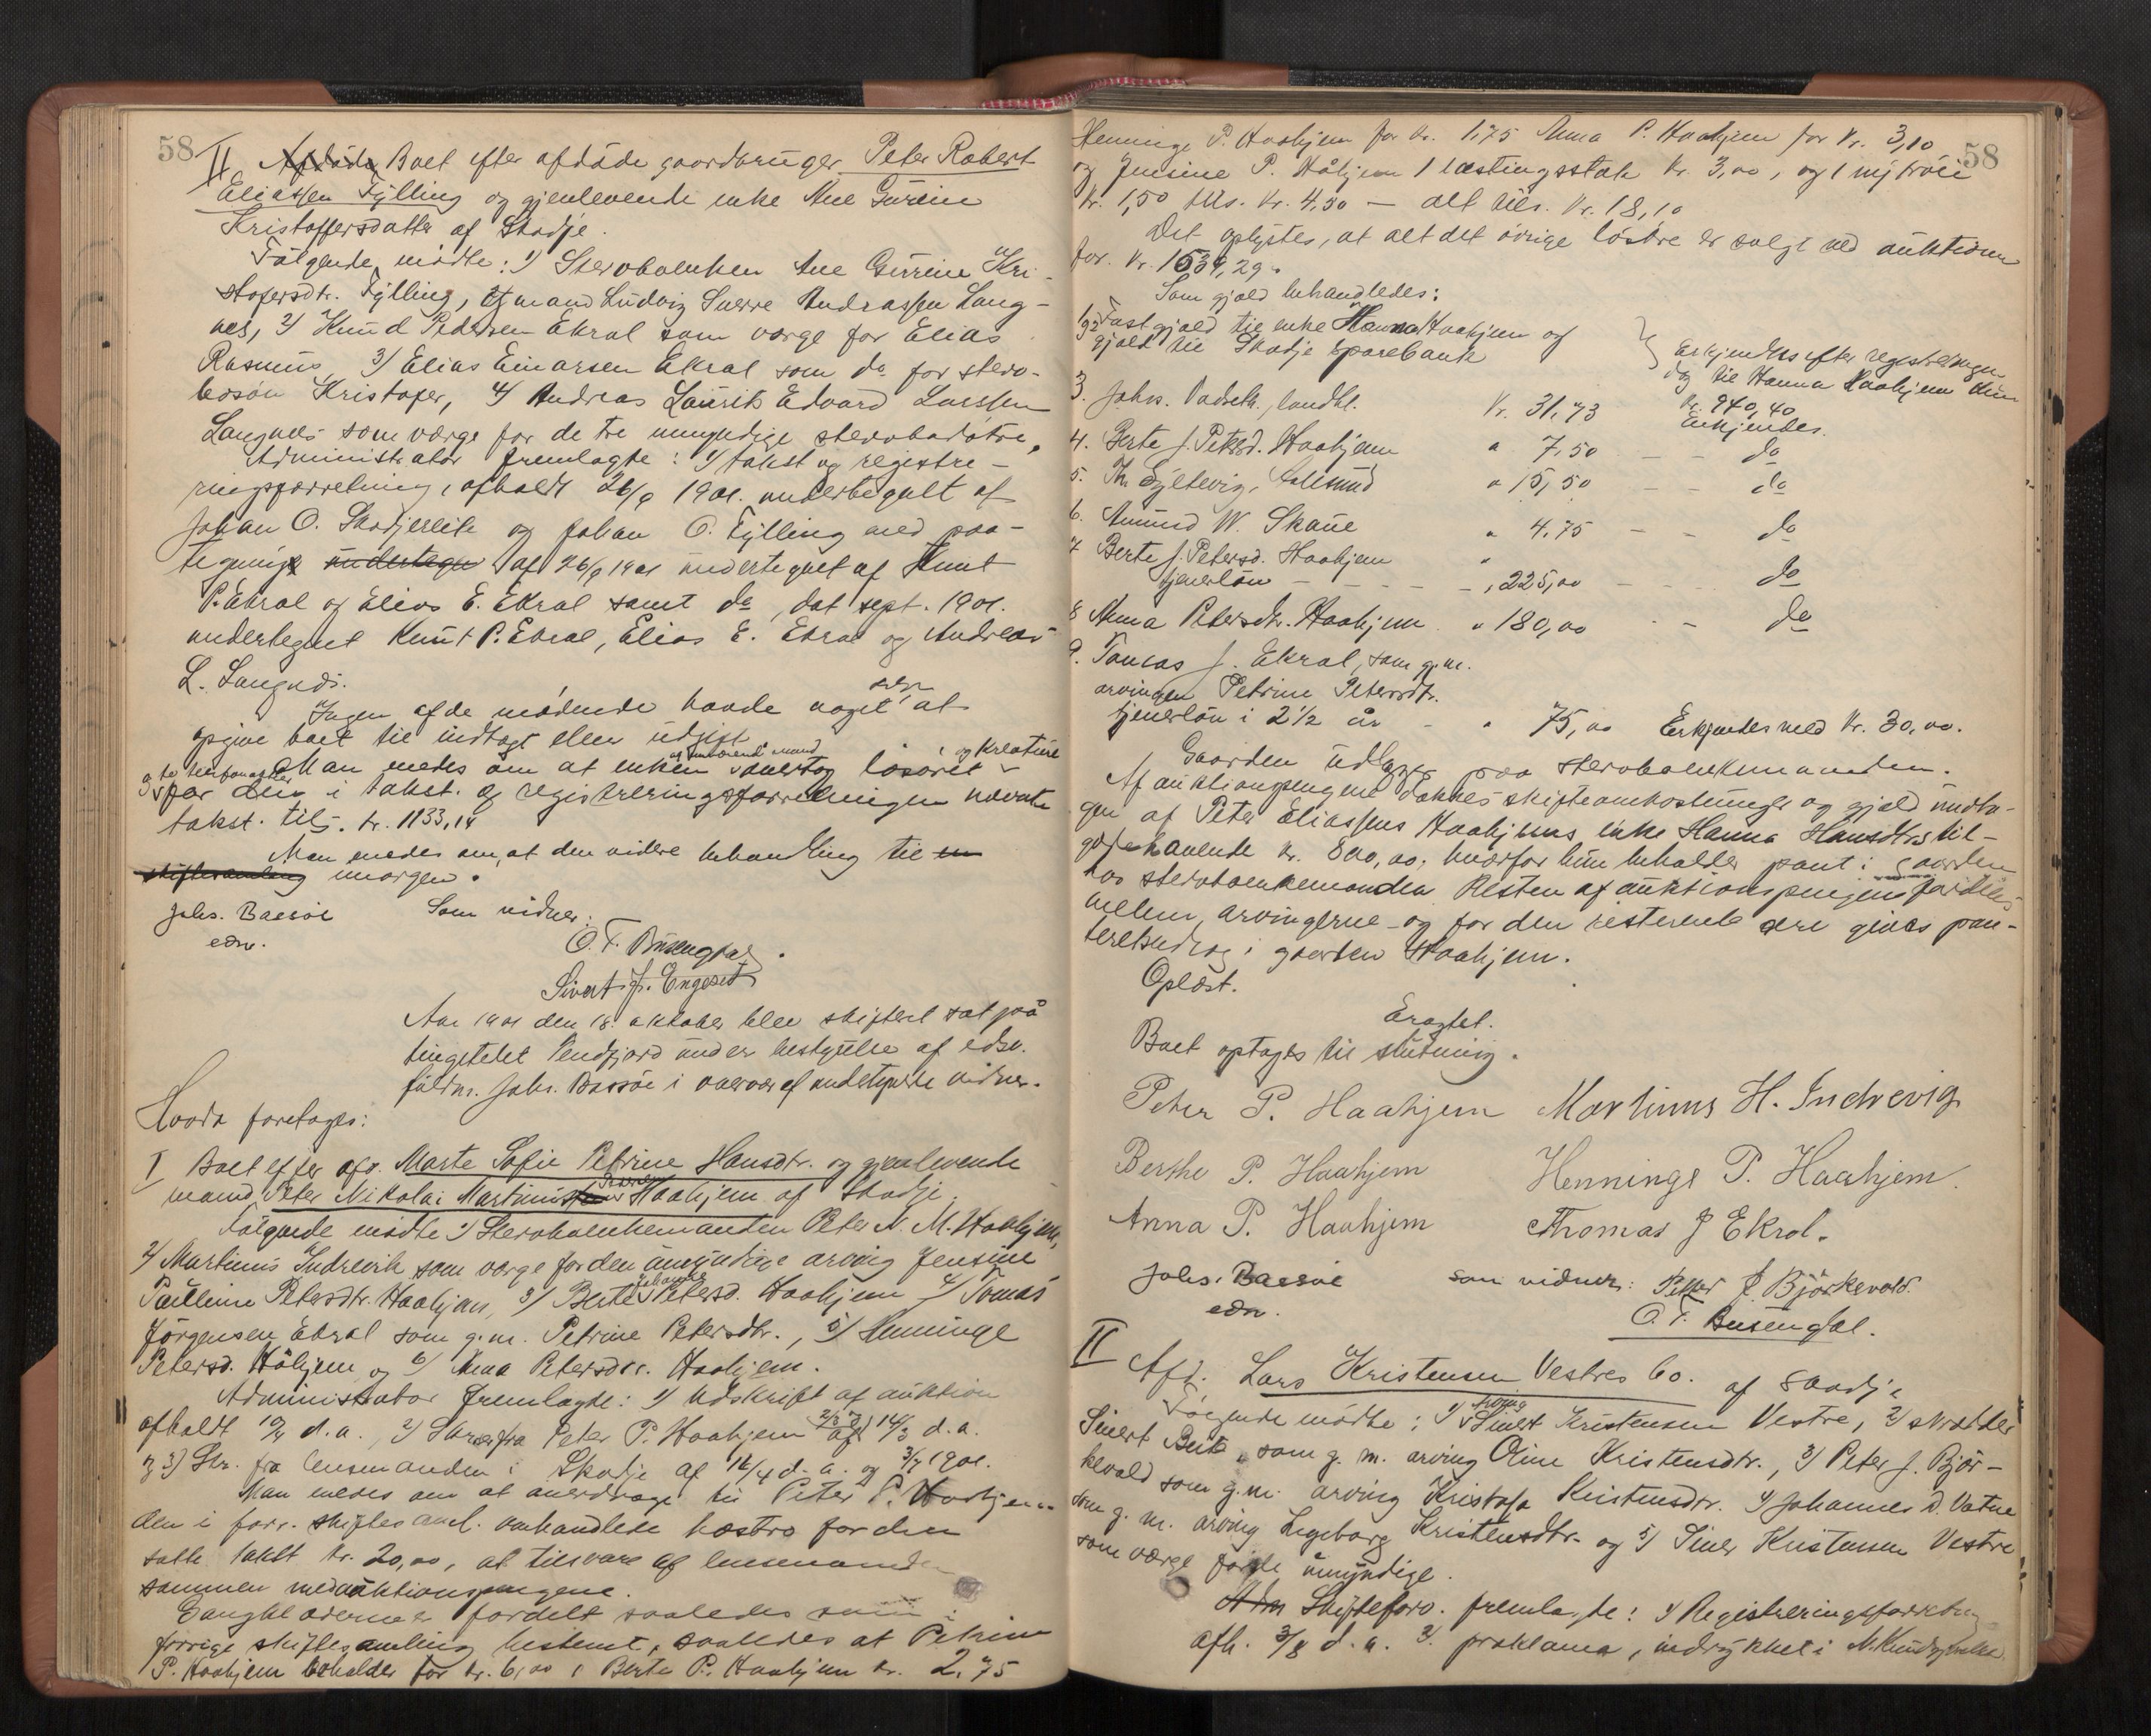 58
II Afdøde Boet efter afdøde gaardbruger Peter Robert
Eliassen Fylling og gjenlevende enke Ane Gurine
Kristoffersdatter af Skodje.
Følgende mødte: 1) Sterboenken Ane Gurine Kri-
stofersdtr. Fylling, Ludvig Sverre Andreassen Lang-
nes, 2) Knud Pedersen Ekrol som værge for Elias
Rasmus, 3) Elias Einarsen Ekrol som do for sterv-
bosøn Kristofer, 4) Andreas Laurits Edvard Larssen
Langnes som værge for de tre umyndige stervbodøtre.
Administrator fremlagte: 1) takst og registre-
ringsforretning, afholdt 26/9 1901. underskrevet af
Johan O. Skodjereite og Johan O. Fylling med paa-
tegning undertegn af 26/9 1901 undertegnet af Knut
P. Ekrol og Elias E. Ekrol samt do, dat sept. 1901.
undertegnet Knut P. Ekrol, Elias E. Ekrol og Andreas
L. Langnes.
Ingen af de mødende havde noget at
opgive boet til indtægt eller udgift.
Man enedes om at enken overtog løsøret og kreature
for den i takst. og registreringsforretningen nævnte
takst. tils. kr. 1133,14
Man enedes om, at den videre behandling til en
skiftesamling imorgen.
Johs. Bassøe Som vidner:
edsv. O. T. Busengdal
Sivert J. Engeset
Aar 1901 den 18. oktober blev skifteret sat på
tingstedet Tenfjord under bestyrelse af edsv.
fuldm. Johs. Bassøe i overvær af undertegnede vidner.
Hvorda foretages:
I Boet efter afd. Marte Sofie Petrine Hansdtr. og gjenlevende
mand Peter Nikolai Martinus Haahjem af Skodje.
Følgende mødte 1) Sterboenkemanden Peter N. M. Haahjem,
2) Martinus Indrevik som værge for den umyndige arving Jensine
Pauline Petersdtr. Haahjem, 3) Berte Johanne Petersd. Haahjem 4) Tomas
Jørgensen Ekrol som g.m. Petrine Petersdtr., 5) Henninge
Petersd. Håhjem og 6) Anna Petersdtr. Haahjem.
Administrator fremlagde: 1) Udskrift af auktion
afholdt d.a., 2) Skr. fra Peter P. Haahjem af 14/3 d.a.
og 3) Skr. fra lensmanden i Skodje af 16/4 d.a. og 3/7 1901.
Man enedes om at overdrage til Peter P. Haahjem
den i forr. skiftesaml. omhandlede for den
satte takst kr. 20,00, at tilsvare af lensmanden
sammen med auktionspengene.
Gangklæderne er fordelt saaledes som i
forrige skiftesamling bestemt, saaledes at Petrine
P. Haahjem beholder for kr. 6,00, Berte P. Haahjem kr. 2,75
58
Henninge P. Haahjem for kr. 1,75 Anna P. Haahjem for kr. 3,10
og Jensine P. Håhjem 1 lastingsstak kr. 3,00, og 1 trøie
kr. 1,50 tils. kr. 4,50 — alt tils. kr. 18,10
Det oplystes, at alt det øvrige løsøre er solgt ved auktionen
for kr. 1539,29.
Som gjæld behandledes:
1 og 2 Fastgjæld til enke Hanna Haahjem og
gjæld til Skodje sparebank } Erkjendes efter registreringen
dog til Hanna Haahjem kun
kr. 940,40
3. Johs. Vadseth, landhl. Kr. 31,73 Erkjendes.
4. Berte J. Petersd. Haahjem " 7,50 — — do
5. Th. Gjeltevig, Aalesund " 15,50 — — do
6. Amund W. Skaue " 4,75 — — do
7 Berte J. Petersd. Haahjem
tjenerløn — — — — " 225,00 — — do
8 Anna Petersdtr. Haahjem " 180,00 — — do
9. Tomas J. Ekrol, som g.m.
arvingen Petrine Petersdtr.
tjenerløn i 2½ år — " 75,00 Erkjendes med kr. 30,00.
Gaarden udlægges paa stervboenkemanden.
Af auktionspengene dækkes skifteomkostninger og gjæld undta-
gen af Peter Eliassens Haahjems enke Hanna Hansdtrs til-
godehavende kr. 800,00, hvorfor hun beholder pant i gaarden
hos stervboenkemanden. Resten af auktionspengene fordeles
mellem arvingerne og for den resterende arv gives pan-
teretsudlæg i gaarden Haahjem.
Oplæst.
Eragtet.
Boet optages til slutning.
Peter P. Haahjem Martinus H. Indrevig
Berthe P. Haahjem Henninge P. Haahjem.
Anna P. Haahjem Thomas J Ekrol.
Johs. Bassøe som vidner: Petter J. Björkevold.
edsv. O. T. Busengdal.
II Afd. Lars Kristensen Vestres bo. af Skodje
Følgende mødte: 1) arving Sivert Kristensen Vestre, 2) skrædder
Sivert Beite, som g. m. arving Oline Kristensdtr., 3) Peter J. Bjør-
kevold som g.m. arving Kristofa Kristensdtr. 4) Johannes D. Vatne
som g. m. arving Ingeborg Kristensdtr. og 5) Siver Kristensen Vestre
som værge for de umyndige.
Adm Skifteforv. fremlagte: 1) Registreringsforretning
afh. 3/8 d.a. 2. proklama, indrykket i N. Kundgj.